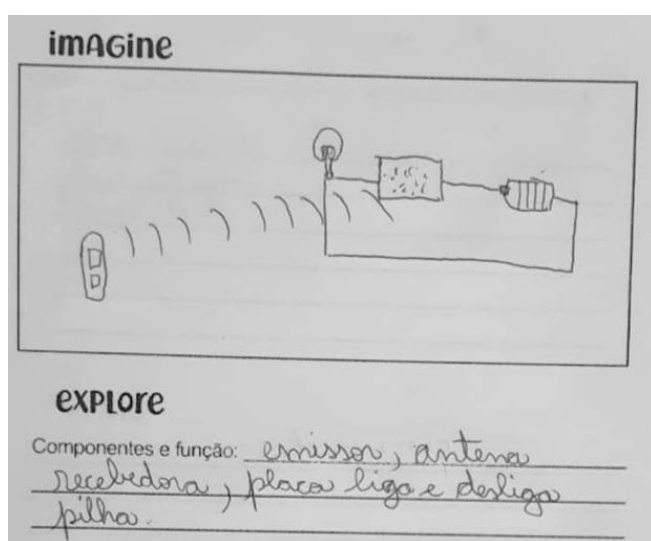 imAGine
explore
Componentes e função: emissor, antena
recebedora, placa liga e desliga
pilha.